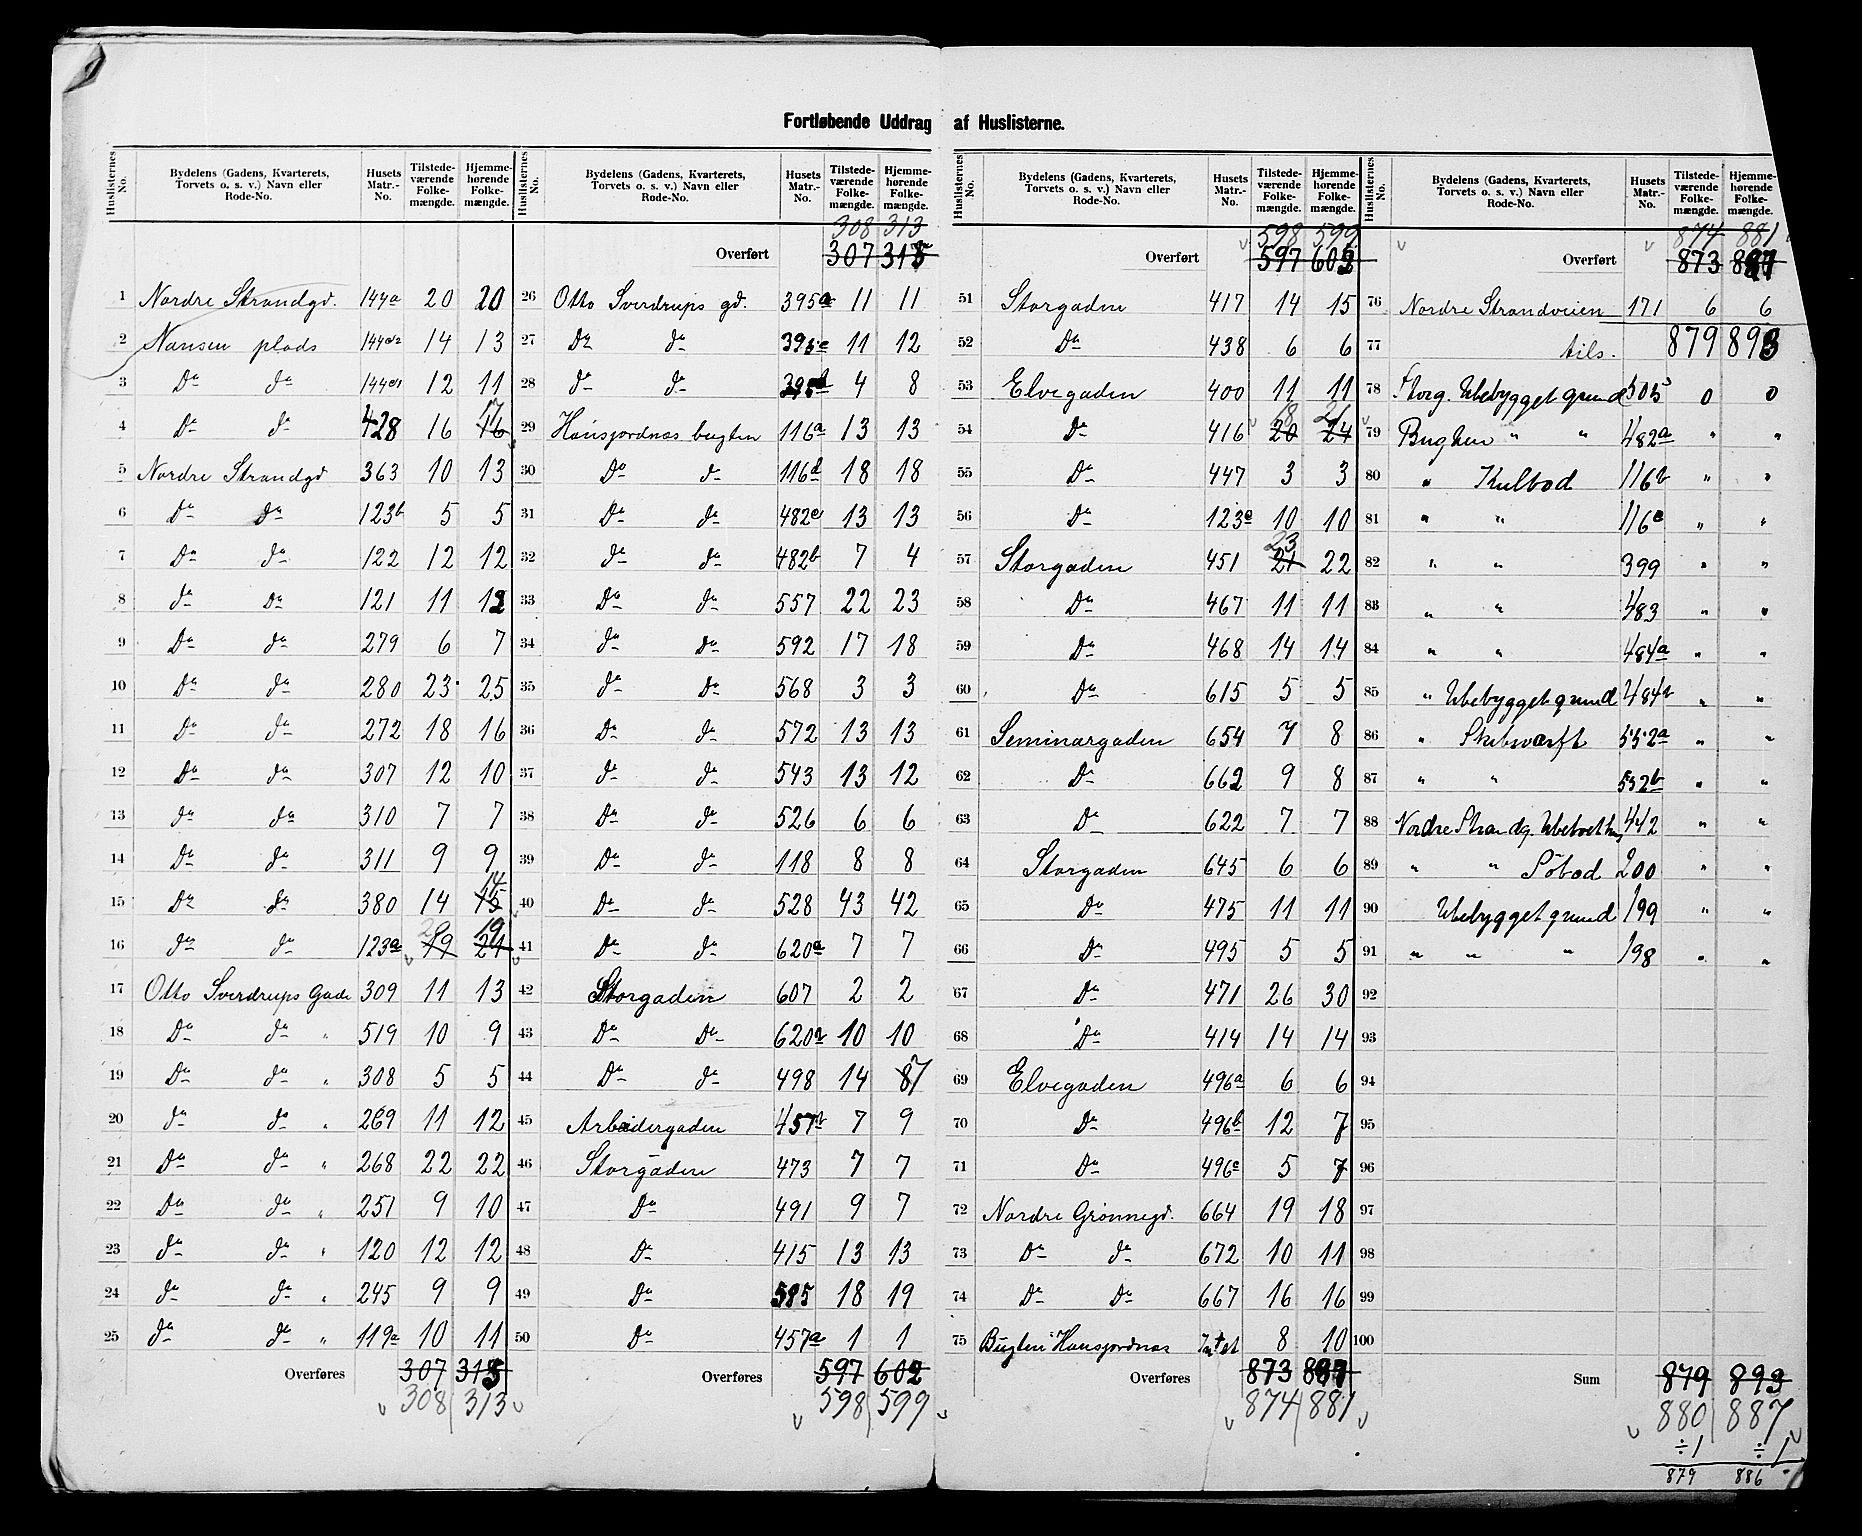 Fortløbende Uddrag af Huslisterne.
Huslisternes No. Bydelens (Gadens, Kvarterets, Torvets o. s. v.) Navn eller Rode-No. Husets Matr.-No. Tilstedeværende Folkemængde. Hjemmehørende Folkemængde.
1 Nordre Strandgd. 144a 20 20
2 Nansen plads 14 13
3 Do do 12 11
4 Do do 428 16 16 17
5 Nordre Strandgd 363 10 13
6 Do do 123b 5 5
7 Do do 122 12 12
8 do Do 121 11 12
9 Do do 279 6 7
10 Do do 280 23 25
11 Do do 272 18 16
12 Do do 307 12 10
13 do do 310 7 7
14 Do do 311 9 9
15 Do do 380 14 15 14
16 do do 123a 19 20 21 19
17 Otto Sverdrups Gade 309 11 13
18 Do do " 519 10 9
19 Do do " 308 5 5
20 do do " 269 11 12
21 Do do " 268 22 22
22 Do do " 251 9 10
23 do do " 120 12 12
24 do do " 245 9 9
25 do do " 119a 10 11
Overføres 307 315
308 313
Huslisternes No. Bydelens (Gadens, Kvarterets, Torvets o. s. v.) Navn eller Rode-No. Husets Matr.-No. Tilstedeværende Folkemængde. Hjemmehørende Folkemængde.
308 313
Overført 307 315
26 Otto Sverdrups gd. 395a 11 11
27 Do do 395c 11 12
28 do do 395d 4 8
29 Hansjordnæs bugten 116a 13 13
30 Do do 116d 18 18
31 Do do 482c 13 13
32 do do 482b 7 4
33 Do do 557 22 23
34 do Do 592 17 18
35 do Do 568 3 3
36 Do do 572 13 13
37 do do 543 13 12
38 Do do 526 6 6
39 Do do 118 8 8
40 Do do 528 43 42
41 Do do 620a 7 7
42 Storgaden 607 2 2
43 Do Do 620a 10 10
44 Do do 498 14
45 Arbeidergaden 457b 7 9
46 Storgaden 473 7 7
47 Do 491 9 7
48 Do 415 13 13
49 Do 585 18 19
50 Do 457a 1 1
Overføres 597 602
598 599
Huslisternes No. Bydelens (Gadens, Kvarterets, Torvets o. s. v.) Navn eller Rode-No. Husets Matr.-No. Tilstedeværende Folkemængde. Hjemmehørende Folkemængde.
598 599
Overført 597 602
51 Storgaden 417 14 15
52 Do 438 6 6
53 Elvegaden 400 11 11
54 Do 416 20 18 24 21
55 Do 447 3 3
56 Do 123e 10 10
57 Storgaden 451 21 23 22
58 Do 467 11 11
59 Do 468 14 14
60 Do 615 5 5
61 Seminargaden 654 7 8
62 Do 662 9 8
63 Do 622 7 7
64 Storgaden 645 6 6
65 Do 475 11 11
66 Do 495 5 5
67 Do 471 26 30
68 Do 414 14 14
69 Elvegaden 496a 6 6
70 Do 496b 12 7
71 Do 496c 5 7
72 Nordre Grønnegd. 664 19 18
73 Do do 672 10 11
74 Do Do 667 16 16
75 Bugten Hansjordnæs Intet 8 10
Overføres 873
874 881
Huslisternes No. Bydelens (Gadens, Kvarterets, Torvets o. s. v.) Navn eller Rode-No. Husets Matr.-No. Tilstedeværende Folkemængde. Hjemmehørende Folkemængde.
874 881
Overført 873
76 Nordre Strandveien 171 6 6
77 tils. 879 893
78 Storg. Ubebygget grund 505 0 0
79 Bugten " " 482a " "
80 " Kulbod 116b " "
81 " " 116c " "
82 " " 399 " "
83 " " 483 " "
84 " " 484a " "
85 " Ubebygget grund 484b " "
86 " Skibsværft 552a " "
87 " " 552b " "
88 Nordre Strandg. 442 " "
89 " " Søbod 200 " "
90 Ubebygget grund 199 " "
91 " " " 198 " "
92
93
94
95
96
97
98
99
100
Sum 879 893
880 887
÷1 ÷1
879 886